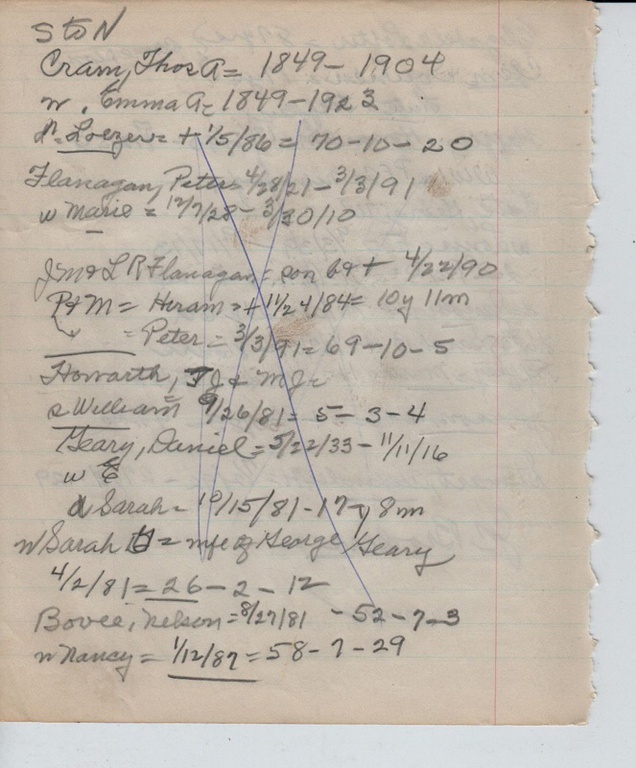 S to N
Cram, Thos A = 1849 - 1904
w. Emma A = 1849 - 1923
Loezer = + 1/5/86 = 70-10-20
Flanagan, Peter 4/28/21 - 3/3/91
w Marie = 12/7/28 - 3/30/10
J M & L R Flanagan = son b & + 4/22/90
P & M = Hiram = + 11/24/84 = 10y 11m
= Peter = 3/3/91 = 69-10-5
Howarth, T J & M J
s William 9/26/81 = 5-3-4
Geary, Daniel = 5/22/33 - 11/11/16
w E
d Sarah = 10/15/81 - 17y 8m
w Sarah = wife of George Geary
4/2/81 = 26-2-12
Bovee, Nelson = 8/27/81 - 52-7-3
w Nancy = 1/12/87 = 58-7-29